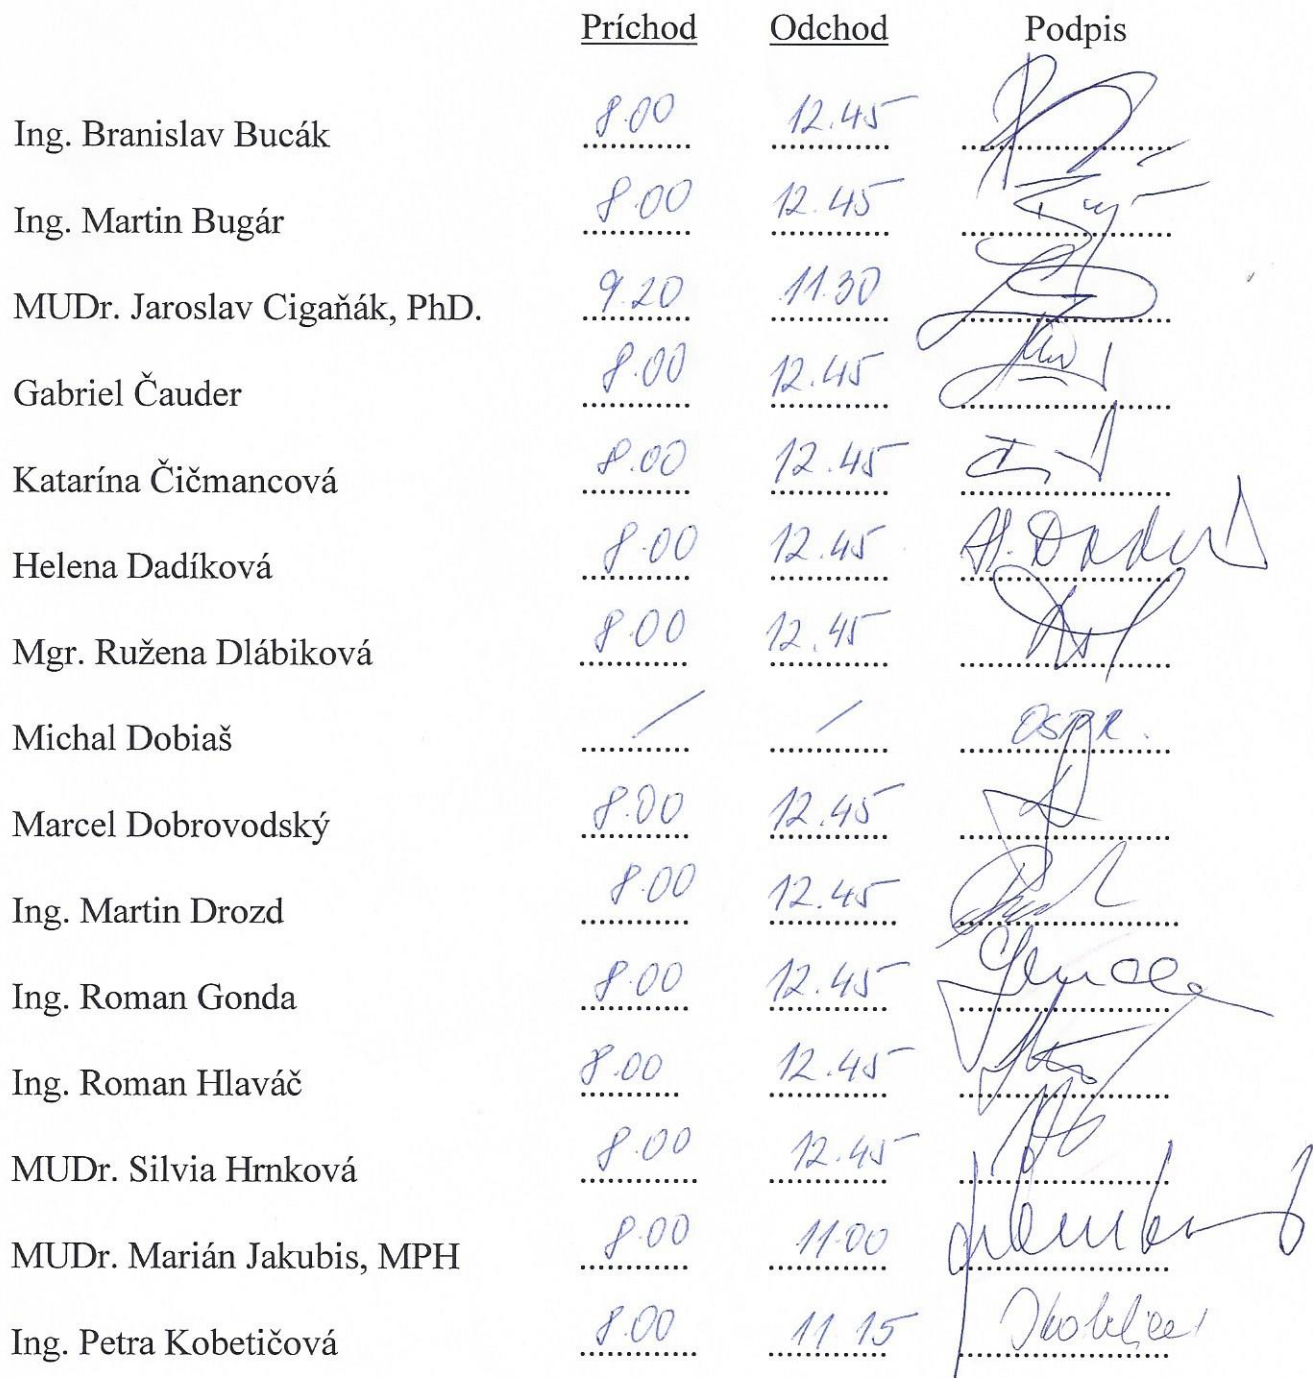 Príchod Odchod Podpis
Ing. Branislav Bucák 8.00 12.45
Ing. Martin Bugár 8.00 12.45
MUDr. Jaroslav Cigaňák, PhD. 9.20 11.30
Gabriel Čauder 8.00 12.45
Katarína Čičmancová 8.00 12.45
Helena Dadíková 8.00 12.45
Mgr. Ružena Dlábiková 8.00 12.45
Michal Dobiaš / / OSPR.
Marcel Dobrovodský 8.00 12.45
Ing. Martin Drozd 8.00 12.45
Ing. Roman Gonda 8.00 12.45
Ing. Roman Hlaváč 8.00 12.45
MUDr. Silvia Hrnková 8.00 12.45
MUDr. Marián Jakubis, MPH 8.00 11.00
Ing. Petra Kobetičová 8.00 11.15